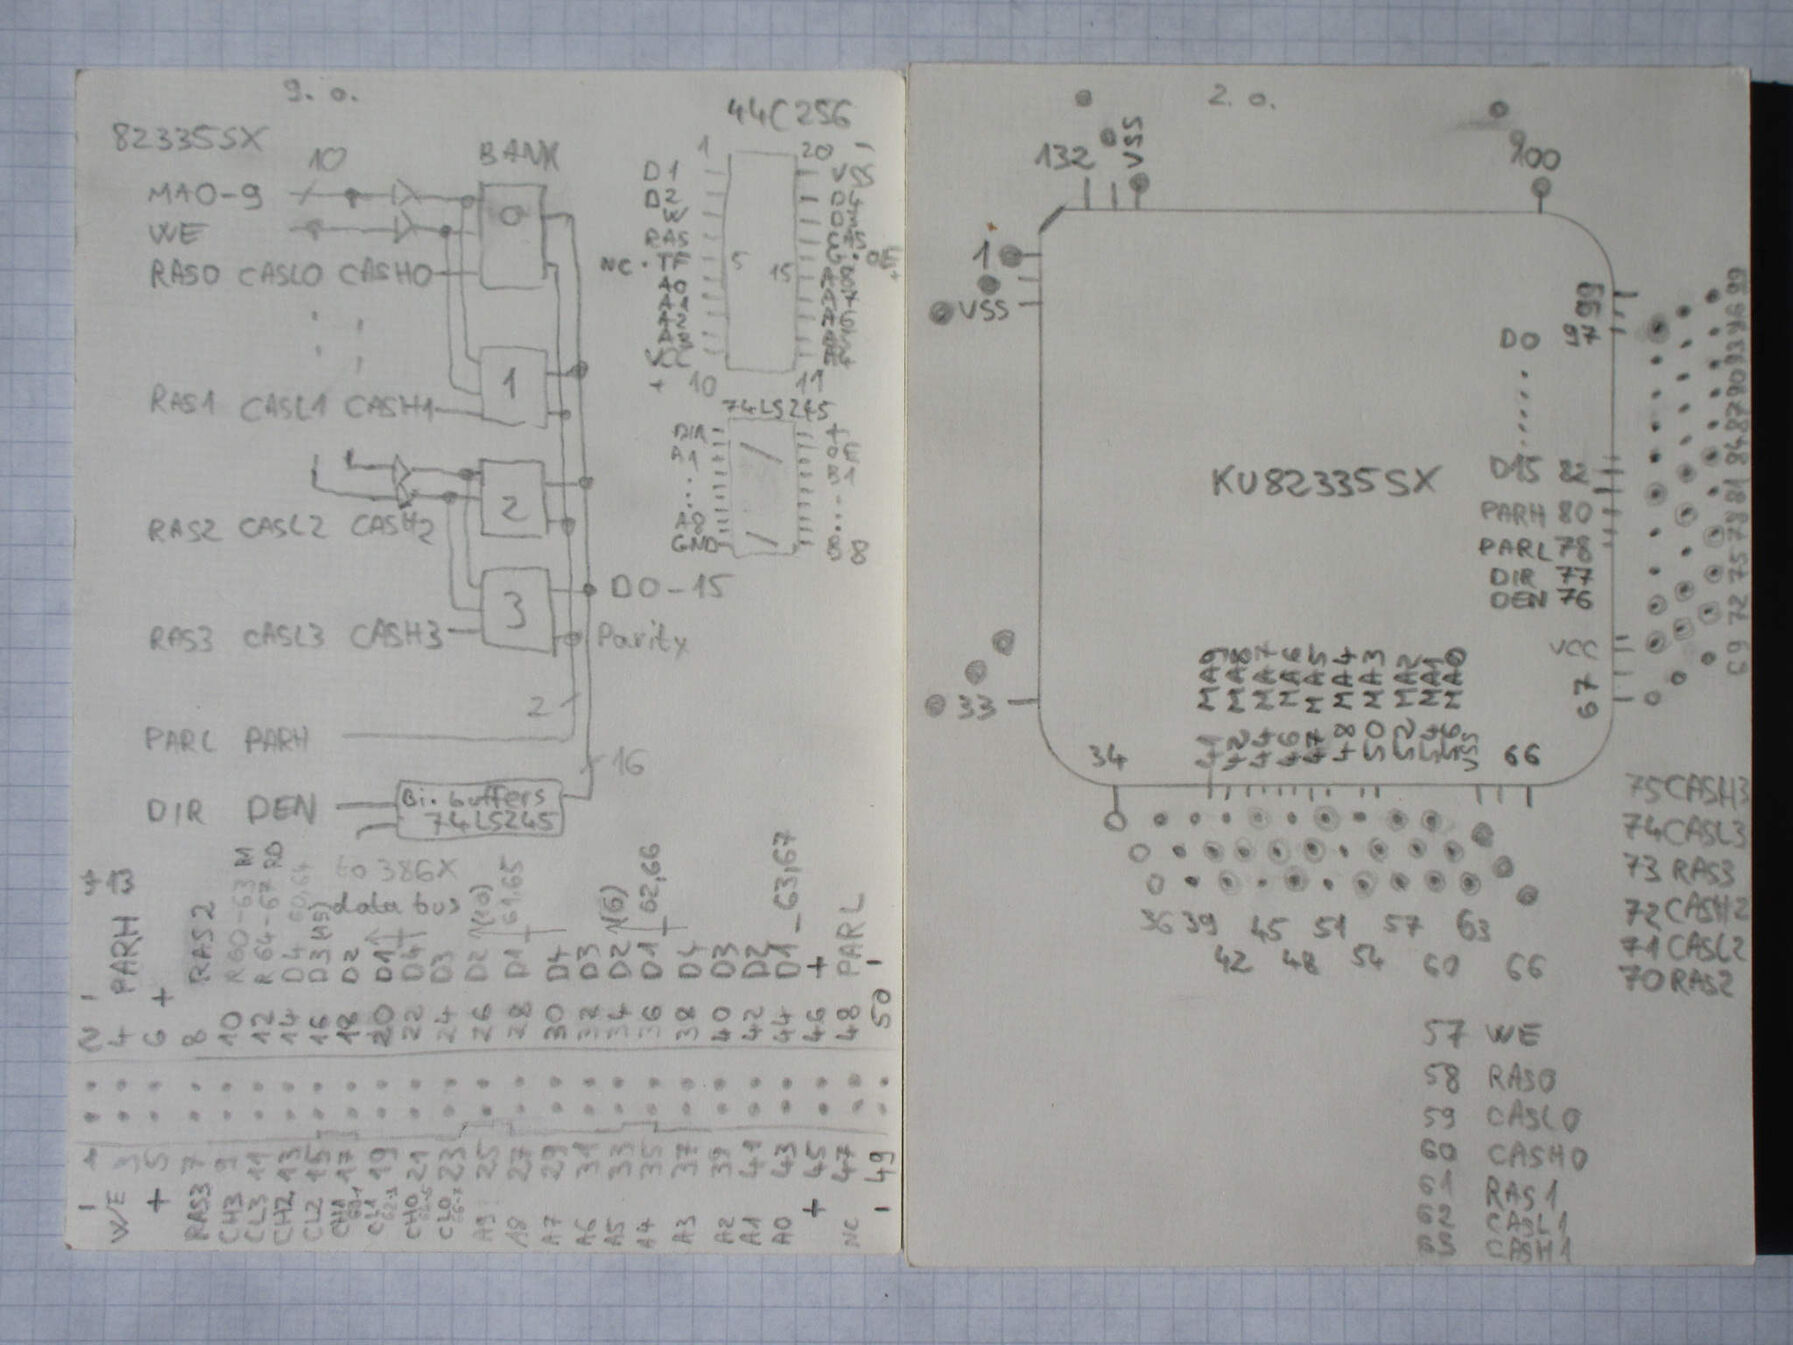 9. o.
82335SX
10
BANK
MA0-9
WE
RAS0 CASL0 CASH0
0
RAS1 CASL1 CASH1
1
RAS2 CASL2 CASH2
2
RAS3 CASL3 CASH3
3
D0-15
Parity
2
PARL PARH
16
DIR DEN
Bi. buffers
74LS245
to 386X
data bus
44C256
1 20 -
D1 VSS
D2 D4
W D3
RAS CAS
NC. TF 5 15 G. OE
A0 A8
A1 A7
A2 A6
A3 A5
VCC A4
+ 10 11
74LS245
DIR +
A1 OE
B1
A8
GND B8
2 -
4 PARH
6 +
8 RAS2
10 R60-63 M
12 R64-67 RD
14 D4 60,64
16 D3 (15)
18 D2
20 D1
22 D4
24 D3
26 D2 (10)
28 D1 61,65
30 D4
32 D3
34 D2 (6)
36 D1 62,66
38 D4
40 D3
42 D2
44 D1 63,67
46 +
48 PARL
50 -
1 -
3 WE
5 +
7 RAS3
9 CH3
11 CL3
13 CH2
15 CL2
17 CH1
19 CL1
21 CH0
23 CL0
25 A9
27 A8
29 A7
31 A6
33 A5
35 A4
37 A3
39 A2
41 A1
43 A0
45 +
47 NC
49 -
2. o.
132 VSS
100
1
VSS
33
KU82335SX
99
D0 97
D15 82
PARH 80
PARL 78
DIR 77
DEN 76
VCC
67
99 96 93 90 87 84 81 78 75 72 69
MA9 MA8 MA7 MA6 MA5 MA4 MA3 MA2 MA1 MA0
34 41 42 44 46 47 48 50 52 54 56 VSS 66
36 39 45 51 57 63
42 48 54 60 66
75 CASH3
74 CASL3
73 RAS3
72 CASH2
71 CASL2
70 RAS2
57 WE
58 RAS0
59 CASL0
60 CASH0
61 RAS1
62 CASL1
63 CASH1